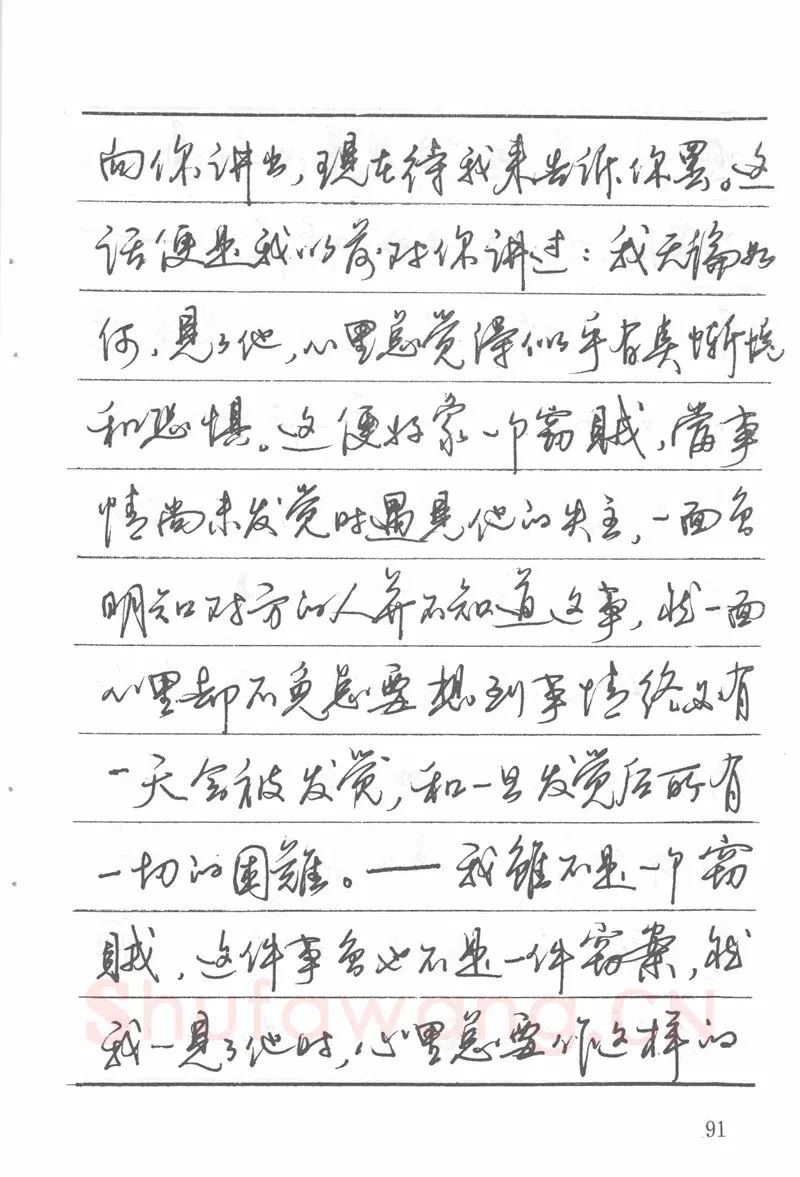 向你讲出，现在待我来告诉你罢。这
话便是我以前对你讲过：我无论如
何，见了他，心里总觉得似乎有点惭愧
和恐惧。这便好象一个窃贼，当事
情尚未发觉时遇见他的失主，一面虽
明知对方的人并不知道这事，然一面
心里却不免总要想到事情终又有
一天会被发觉，和一旦发觉后所有
一切的困难。——我虽不是一个窃
贼，这件事虽也不是一件窃案，然
我一见了他时，心里总要作这样的
Shufawang.CN
91